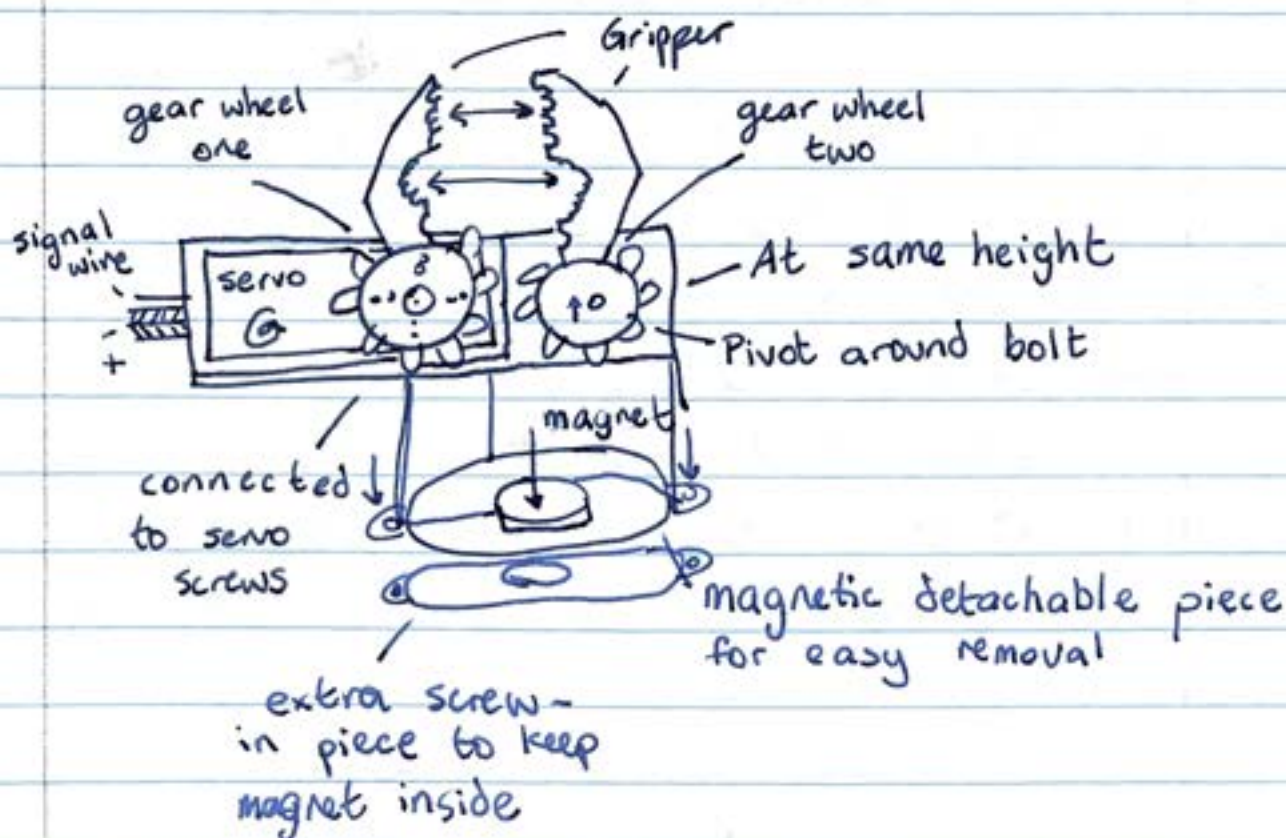 Gripper
gear wheel
one
gear wheel
two
signal
wire
servo
-
+
At same height
Pivot around bolt
magnet
connected
to servo
screws
magnetic detachable piece
for easy removal
extra screw-
in piece to keep
magnet inside